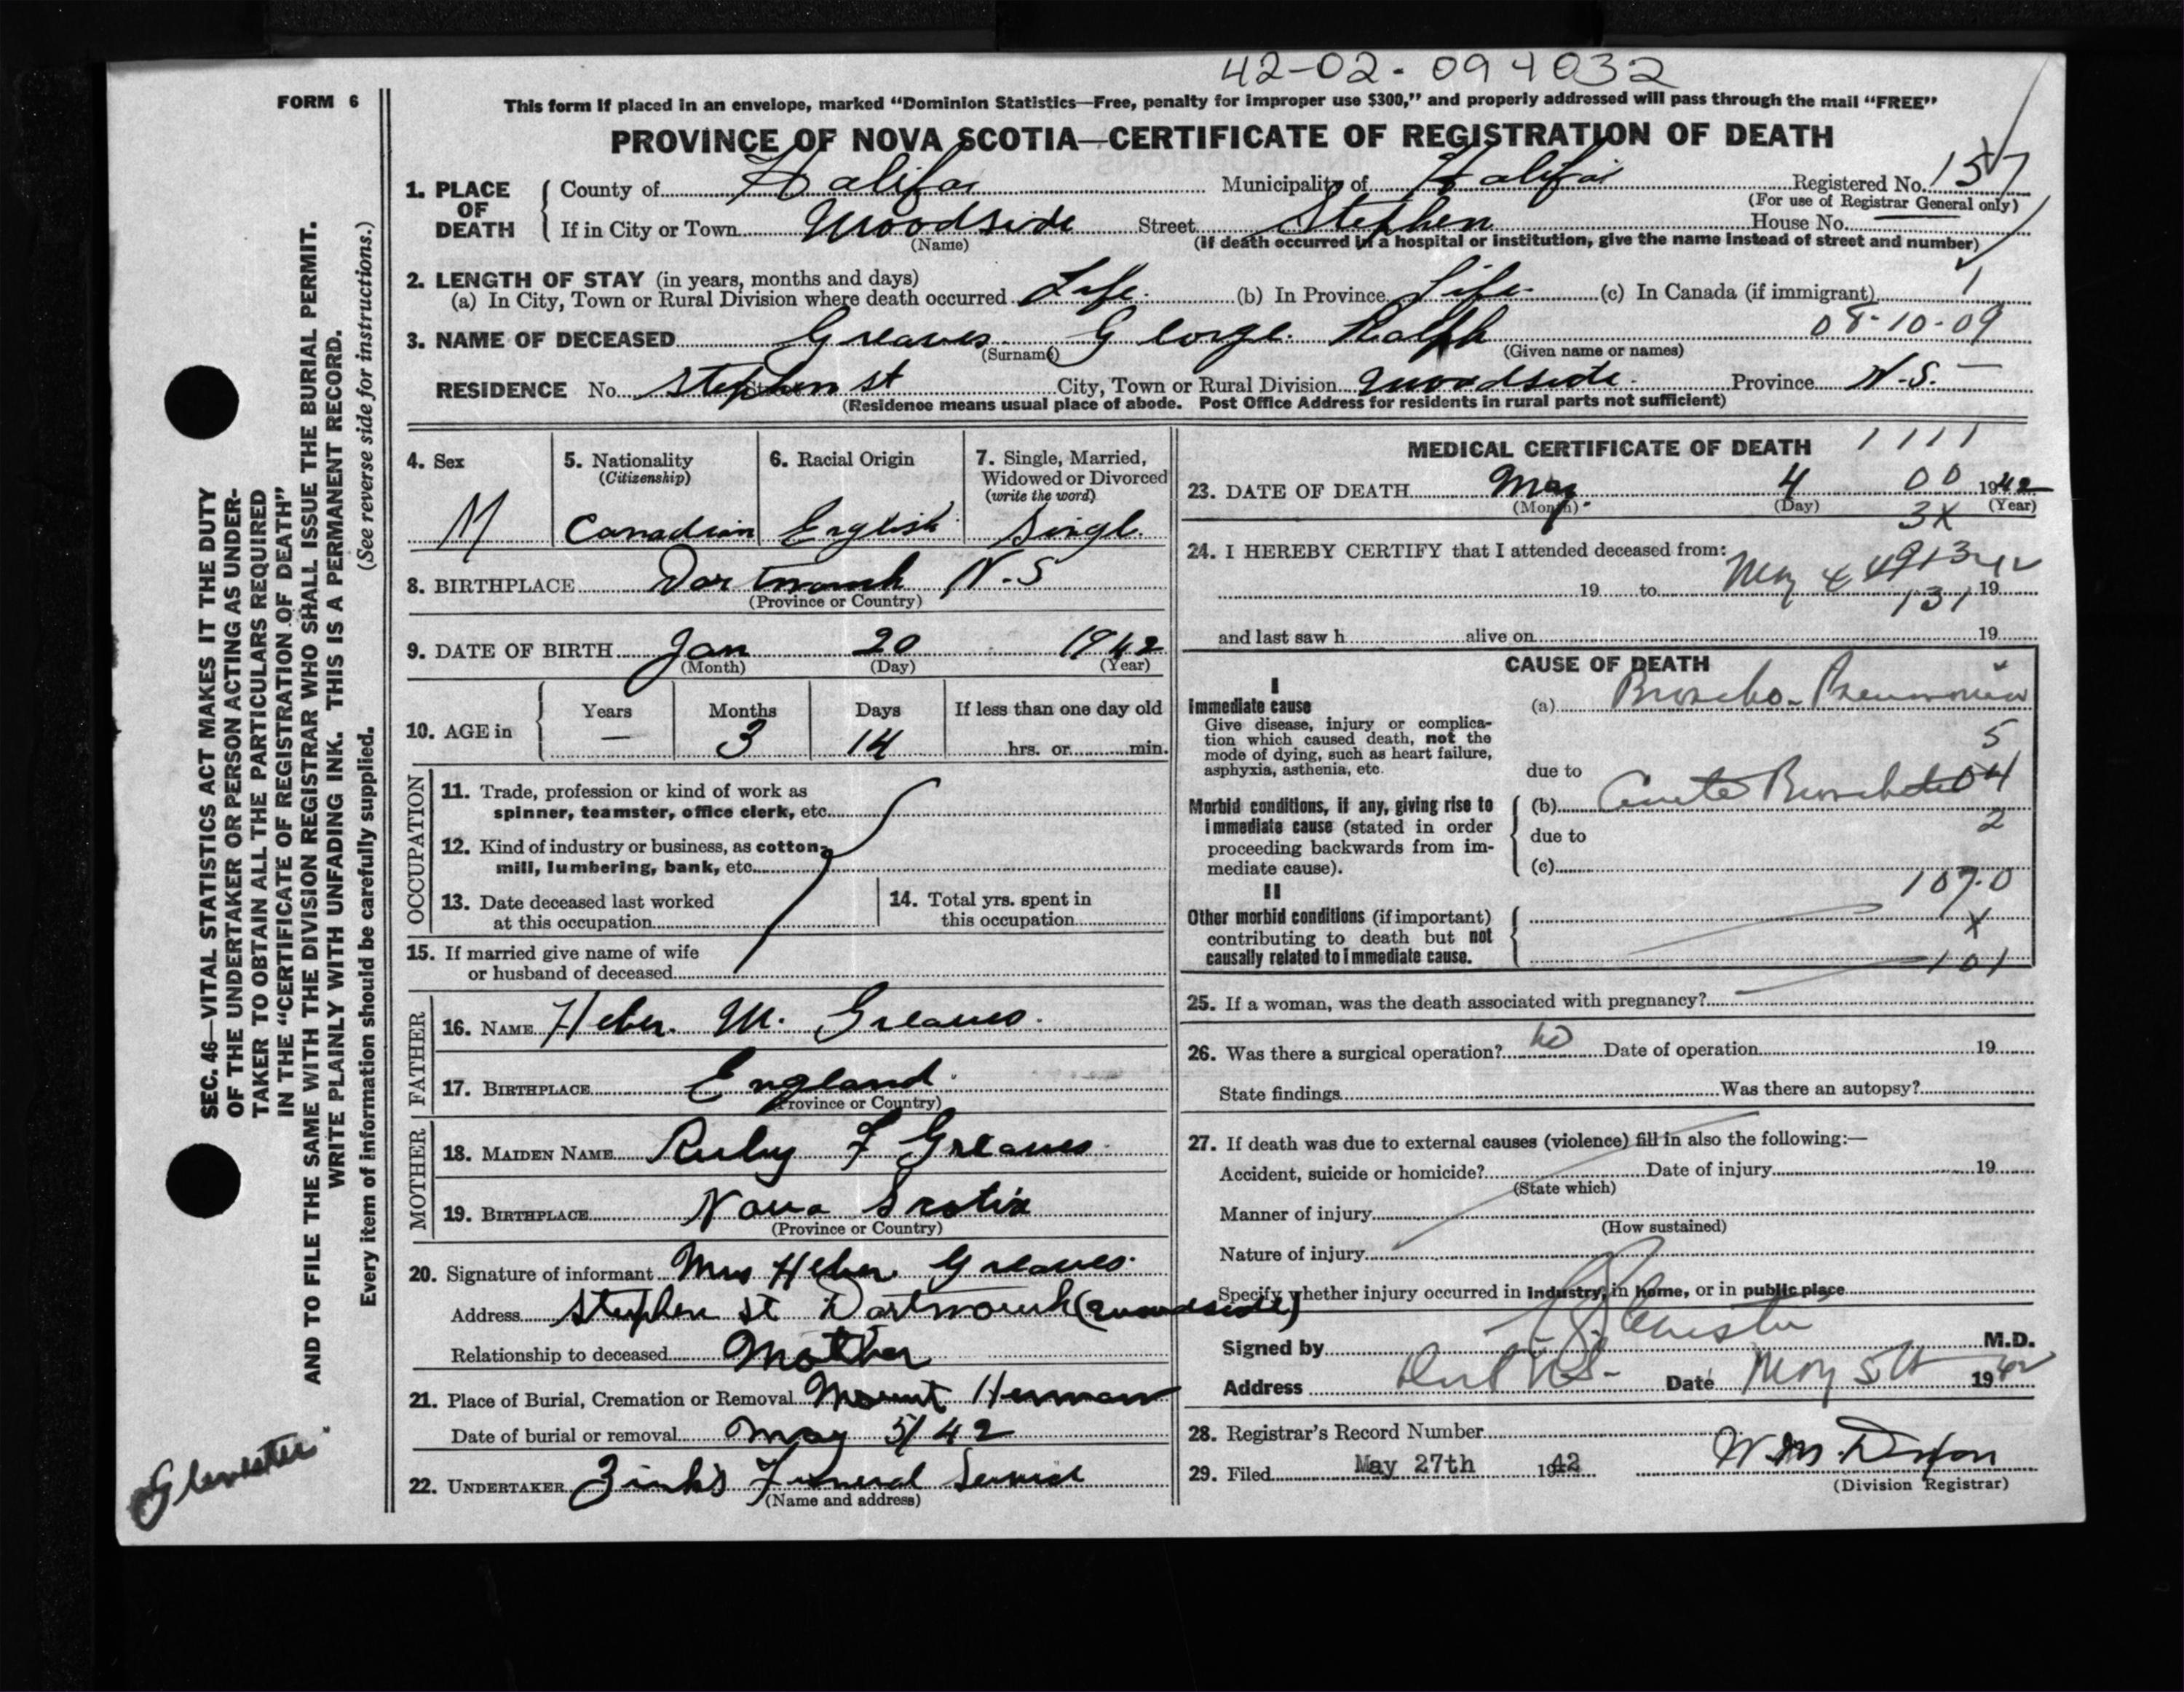 42-02-094032
FORM 6
This form if placed in an envelope, marked "Dominion Statistics—Free, penalty for improper use $300," and properly addressed will pass through the mail "FREE"
PROVINCE OF NOVA SCOTIA—CERTIFICATE OF REGISTRATION OF DEATH
1. PLACE OF DEATH County of Halifax Municipality of Halifax Registered No. 157
(For use of Registrar General only)
If in City or Town Woodside Street Stephen House No.
(Name) (If death occurred in a hospital or institution, give the name instead of street and number)
2. LENGTH OF STAY (in years, months and days)
(a) In City, Town or Rural Division where death occurred Life. (b) In Province Life. (c) In Canada (if immigrant) 1
08-10-09
3. NAME OF DECEASED Greaves George. Ralph
(Surname) (Given name or names)
RESIDENCE No. Stephen St Street City, Town or Rural Division Woodside. Province N.S.
(Residence means usual place of abode. Post Office Address for residents in rural parts not sufficient)
4. Sex M
5. Nationality (Citizenship) Canadian
6. Racial Origin English
7. Single, Married, Widowed or Divorced (write the word) Single.
8. BIRTHPLACE Dartmouth N.S
(Province or Country)
9. DATE OF BIRTH Jan 20 1942
(Month) (Day) (Year)
10. AGE in Years — Months 3 Days 14 If less than one day old hrs. or min.
OCCUPATION
11. Trade, profession or kind of work as spinner, teamster, office clerk, etc.
12. Kind of industry or business, as cotton mill, lumbering, bank, etc.
13. Date deceased last worked at this occupation
14. Total yrs. spent in this occupation
15. If married give name of wife or husband of deceased
FATHER
16. NAME Heber. M. Greaves.
17. BIRTHPLACE England.
(Province or Country)
MOTHER
18. MAIDEN NAME Ruby F Greaves.
19. BIRTHPLACE Nova Scotia
(Province or Country)
20. Signature of informant Mrs Heber Greaves.
Address Stephen St Dartmouth (Woodside)
Relationship to deceased Mother
21. Place of Burial, Cremation or Removal Mount Herman
Date of burial or removal May 5/42
22. UNDERTAKER Zink's Funeral Service
(Name and address)
MEDICAL CERTIFICATE OF DEATH 1111
23. DATE OF DEATH May 4 00 1942
(Month) (Day) (Year)
3X
24. I HEREBY CERTIFY that I attended deceased from:
19 to May 4 19
131
and last saw h alive on 19
CAUSE OF DEATH
I
Immediate cause
Give disease, injury or complication which caused death, not the mode of dying, such as heart failure, asphyxia, asthenia, etc.
(a) Broncho-Pneumonia
5
due to
Morbid conditions, if any, giving rise to immediate cause (stated in order proceeding backwards from immediate cause).
(b) Acute Bronchitis 04
2
due to
(c)
107.0
II
Other morbid conditions (if important) contributing to death but not causally related to immediate cause.
X
101
25. If a woman, was the death associated with pregnancy?
26. Was there a surgical operation? no Date of operation 19
State findings Was there an autopsy?
27. If death was due to external causes (violence) fill in also the following:—
Accident, suicide or homicide? Date of injury 19
(State which)
Manner of injury
(How sustained)
Nature of injury
Specify whether injury occurred in industry, in home, or in public place
Signed by M.D.
Address Date May 5th 1942
28. Registrar's Record Number
29. Filed May 27th 1942
(Division Registrar)
SEC. 46—VITAL STATISTICS ACT MAKES IT THE DUTY
OF THE UNDERTAKER OR PERSON ACTING AS UNDER-
TAKER TO OBTAIN ALL THE PARTICULARS REQUIRED
IN THE "CERTIFICATE OF REGISTRATION OF DEATH"
AND TO FILE THE SAME WITH THE DIVISION REGISTRAR WHO SHALL ISSUE THE BURIAL PERMIT.
WRITE PLAINLY WITH UNFADING INK. THIS IS A PERMANENT RECORD.
Every item of information should be carefully supplied. (See reverse side for instructions.)